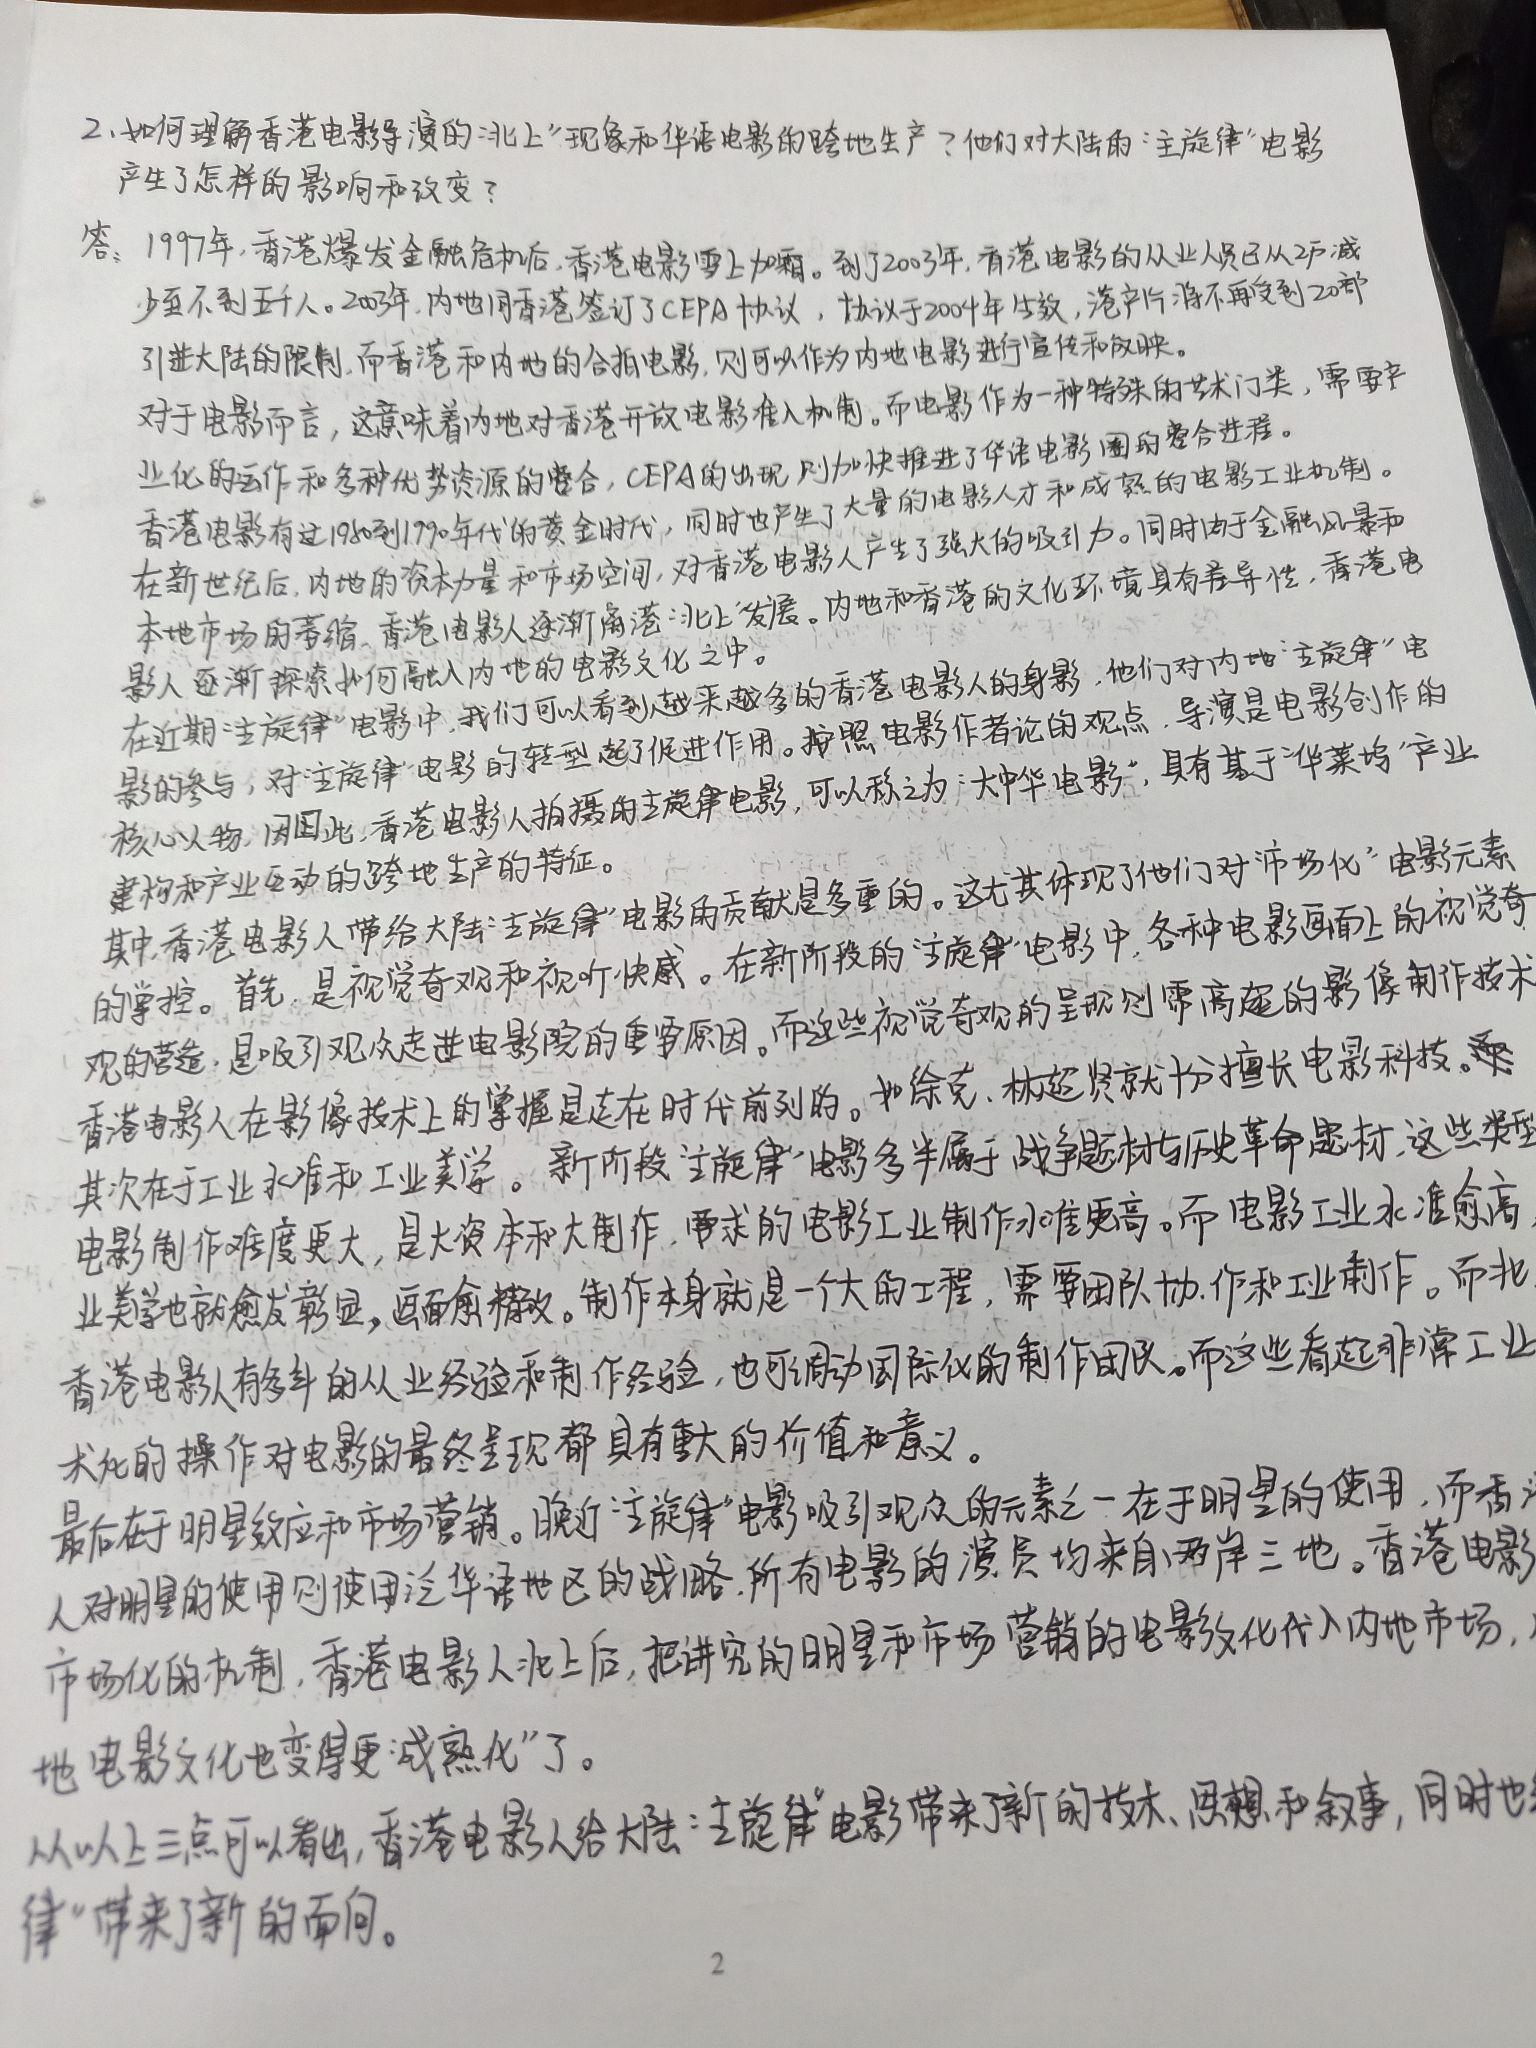 2、如何理解香港电影导演的“北上”现象和华语电影的跨地生产？他们对大陆的“主旋律”电影
产生了怎样的影响和改变？
答：1997年，香港爆发金融危机后，香港电影雪上加霜。到了2003年，香港电影的从业人员已从2万减
少至不到五千人。2003年，内地同香港签订了CEPA协议，协议于2004年生效，港产片将不再受到20部
引进大陆的限制，而香港和内地的合拍电影，则可以作为内地电影进行宣传和放映。
对于电影而言，这意味着内地对香港开放电影准入机制。而电影作为一种特殊的艺术门类，需要产
业化的运作和多种优势资源的整合，CEPA的出现则加快推进了华语电影圈的整合进程。
香港电影有过1980到1990年代的黄金时代，同时也产生了大量的电影人才和成熟的电影工业机制。
在新世纪后，内地的资本力量和市场空间，对香港电影人产生了强大的吸引力。同时由于金融风暴和
本地市场的萎缩，香港电影人逐渐离港“北上”发展。内地和香港的文化环境具有差异性，香港电
影人逐渐探索如何融入内地的电影文化之中。
在近期“主旋律”电影中，我们可以看到越来越多的香港电影人的身影，他们对内地“主旋律”电
影的参与，对“主旋律”电影的转型起了促进作用。按照电影作者论的观点，导演是电影创作的
核心人物，因此，香港电影人拍摄的主旋律电影，可以称之为“大中华电影”，具有基于“华莱坞”产业
建构和产业互动的跨地生产的特征。
其中，香港电影人带给大陆“主旋律”电影的贡献是多重的。这尤其体现了他们对“市场化”电影元素
的掌控。首先，是视觉奇观和视听快感。在新阶段的“主旋律”电影中，各种电影画面上的视觉奇
观的营造，是吸引观众走进电影院的重要原因。而这些视觉奇观的呈现则需高超的影像制作技术
香港电影人在影像技术上的掌握是走在时代前列的。如徐克、林超贤就十分擅长电影科技。
其次在于工业水准和工业美学。新阶段“主旋律”电影多半属于战争题材与历史革命题材，这些类型
电影制作难度更大，是大资本和大制作，要求的电影工业制作水准更高。而电影工业水准愈高，
业美学也就愈发彰显，画面愈精致。制作本身就是一个大的工程，需要团队协作和工业制作。而北
香港电影人有多年的从业经验和制作经验，也可调动国际化的制作团队。而这些看起非常工业
术化的操作对电影的最终呈现都具有重大的价值和意义。
最后在于明星效应和市场营销。晚近“主旋律”电影吸引观众的元素之一在于明星的使用，而香港
人对明星的使用则使用泛华语地区的战略，所有电影的演员均来自两岸三地。香港电影
市场化的机制，香港电影人北上后，把讲究的明星和市场营销的电影文化代入内地市场，
地电影文化也变得更“成熟化”了。
从以上三点可以看出，香港电影人给大陆“主旋律”电影带来了新的技术、思想和叙事，同时也
律”带来了新的面向。
2